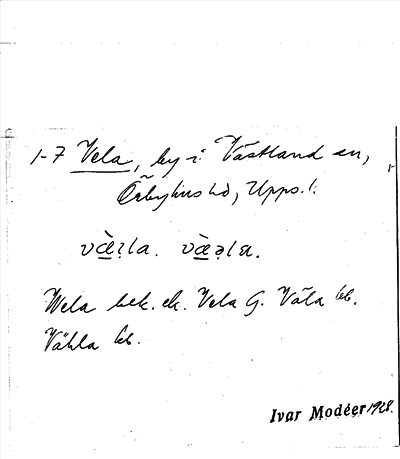 1-7 Vela, by i Västland sn,
Örbyhus hd, Upps. l.
Wela bek. ek. Vela G. Väla kb.
Vähla kb.
Ivar Modéer 1928.